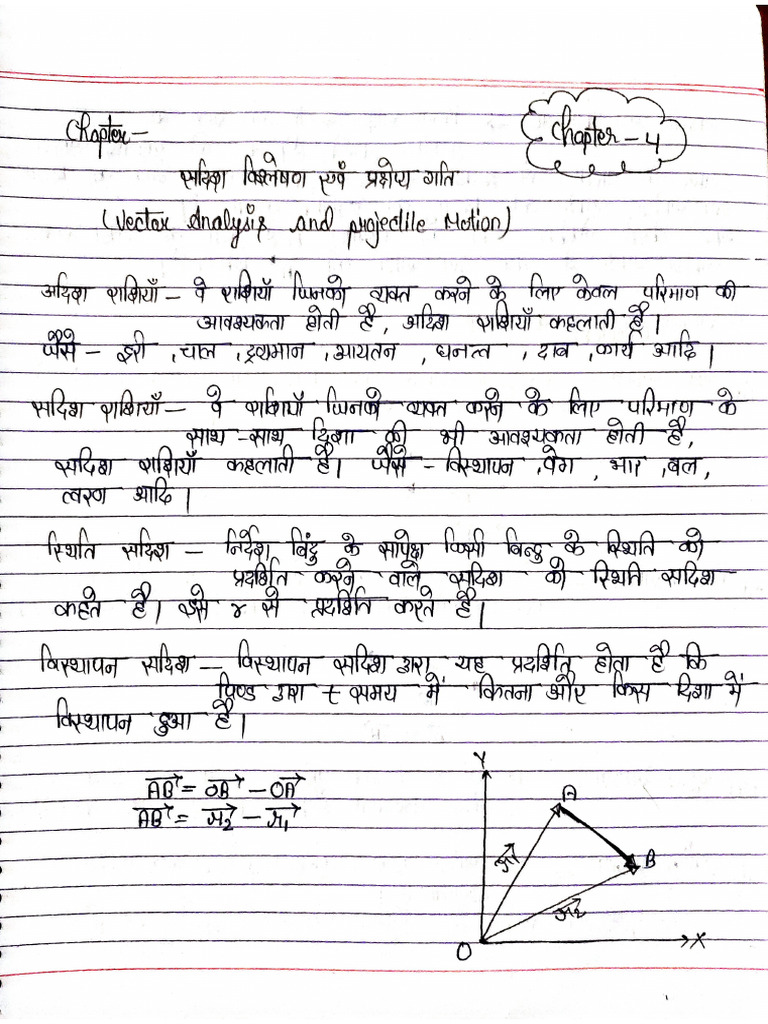 Chapter-
Chapter-4
सदिश विश्लेषण एवं प्रक्षेप्य गति
(Vector Analysis and projectile Motion)
अदिश राशियाँ – वे राशियाँ जिनको व्यक्त करने के लिए केवल परिमाण की
आवश्यकता होती है, अदिश राशियाँ कहलाती हैं।
जैसे – दूरी, चाल, द्रव्यमान, आयतन, घनत्व, दाब, कार्य आदि।
सदिश राशियाँ – वे राशियाँ जिनको व्यक्त करने के लिए परिमाण के
साथ-साथ दिशा की भी आवश्यकता होती है,
सदिश राशियाँ कहलाती हैं। जैसे – विस्थापन, वेग, भार, बल,
त्वरण आदि।
स्थिति सदिश – निर्देश बिंदु के सापेक्ष किसी बिन्दु के स्थिति को
प्रदर्शित करने वाले सदिश को स्थिति सदिश
कहते हैं। इसे r से प्रदर्शित करते हैं।
विस्थापन सदिश – विस्थापन सदिश द्वारा यह प्रदर्शित होता है कि
पिण्ड द्वारा t समय में कितना और किस दिशा में
विस्थापन हुआ है।
AB⃗ = OB⃗ – OA⃗
AB⃗ = r₂⃗ – r₁⃗
Y
A
r₁⃗
B
r₂⃗
O
X